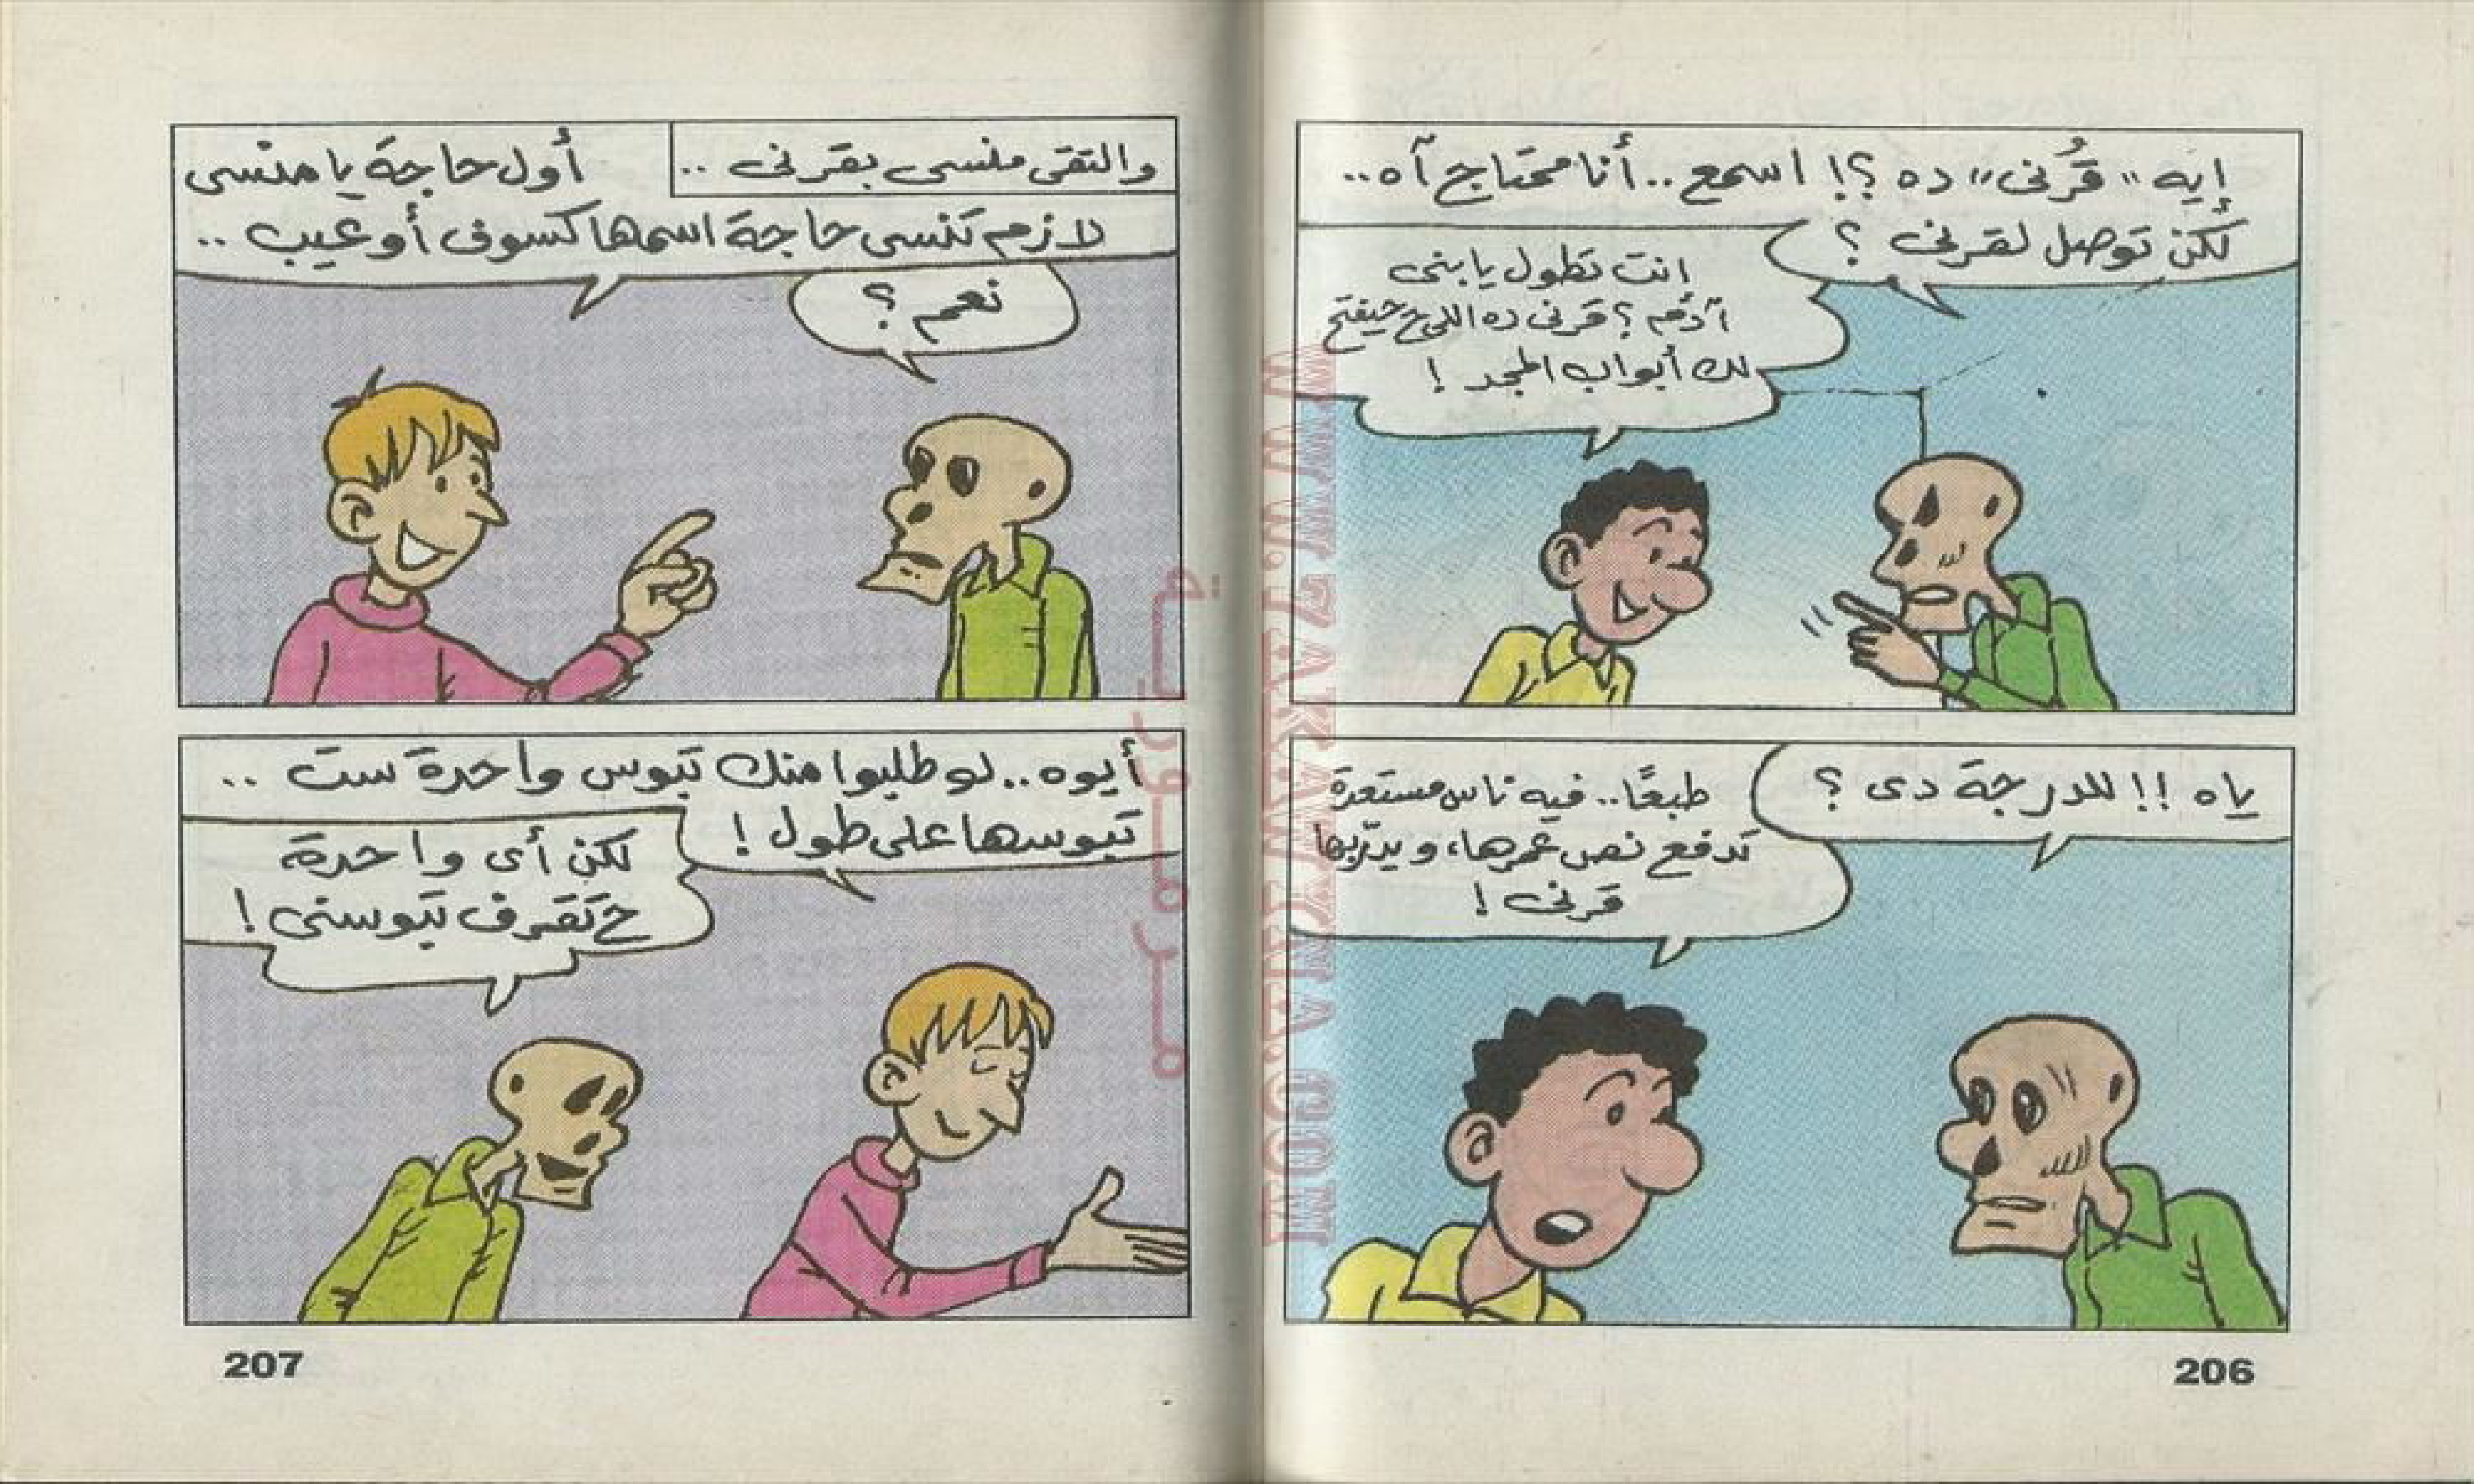 إيه "قُرنى" ده ؟! اسمع .. أنا محتاج آه ..
لكن توصل لقرنى ؟
انت تطول يابنى
؟ قرنى ده اللى حيفتح
لك أبواب المجد !
ياه !! للدرجة دى ؟
طبعًا .. فيه ناس مستعدة
تدفع نص عمرها، ويدرّبها
قرنى !
206
والتقى منسى بقرنى ..
أول حاجة يا منسى
لازم تنسى حاجة اسمها كسوف أو عيب ..
نعم ؟
أيوه .. لو طلبوا منك تبوس واحدة ست ..
تبوسها على طول !
لكن أى واحدة
ح تقرف تبوسنى !
207
WWW.ZAKAWYYA.COM